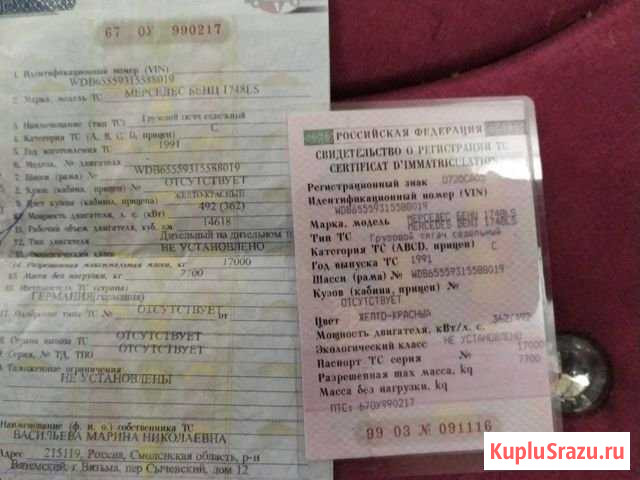 67 ОУ 990217
1. Идентификационный номер (VIN)
WDB65559315588019
2. Марка, модель ТС МЕРСЕДЕС БЕНЦ 1748LS
3. Наименование (тип ТС) Грузовой тягач седельный
4. Категория ТС (A, B, C, D, прицеп) C
5. Год изготовления ТС 1991
6. Модель, № двигателя
7. Шасси (рама) № WDB65559315588019
8. Кузов (кабина, прицеп) № ОТСУТСТВУЕТ
9. Цвет кузова (кабины, прицепа) ЖЕЛТО-КРАСНЫЙ
10. Мощность двигателя, л. с. (кВт) 492 (362)
11. Рабочий объем двигателя, куб. см 14618
12. Тип двигателя Дизельный на дизельном
13. Экологический класс НЕ УСТАНОВЛЕНО
14. Разрешенная максимальная масса, кг 17000
15. Масса без нагрузки, кг 7700
16. Изготовитель ТС (страна)
ГЕРМАНИЯ
17. Одобрение типа ТС № ОТСУТСТВУЕТ от
18. Страна вывоза ТС ОТСУТСТВУЕТ
19. Серия, № ТД, ТПО ОТСУТСТВУЕТ
Таможенные ограничения
НЕ УСТАНОВЛЕНЫ
Наименование (ф. и. о.) собственника ТС
ВАСИЛЬЕВА МАРИНА НИКОЛАЕВНА
Адрес 215119, Россия, Смоленская область, р-н
Вяземский, г Вязьма, пер Сычевский, дом 12
РОССИЙСКАЯ ФЕДЕРАЦИЯ
СВИДЕТЕЛЬСТВО О РЕГИСТРАЦИИ ТС
CERTIFICAT D'IMMATRICULATION
Регистрационный знак
Идентификационный номер (VIN)
WDB65559315588019
Марка, модель МЕРСЕДЕС БЕНЦ 1748LS
MERCEDES BENZ 1748LS
Тип ТС Грузовой тягач седельный
Категория ТС (ABCD, прицеп) C
Год выпуска ТС 1991
Шасси (рама) № WDB65559315588019
Кузов (кабина, прицеп) №
ОТСУТСТВУЕТ
Цвет ЖЕЛТО-КРАСНЫЙ
Мощность двигателя, кВт/л. с. 362/492
Экологический класс НЕ УСТАНОВЛЕНО
Паспорт ТС серия №
Разрешенная max масса, kg 17000
Масса без нагрузки, kg 7700
ПТС: 67ОУ990217
99 03 № 091116
KupluSrazu.ru